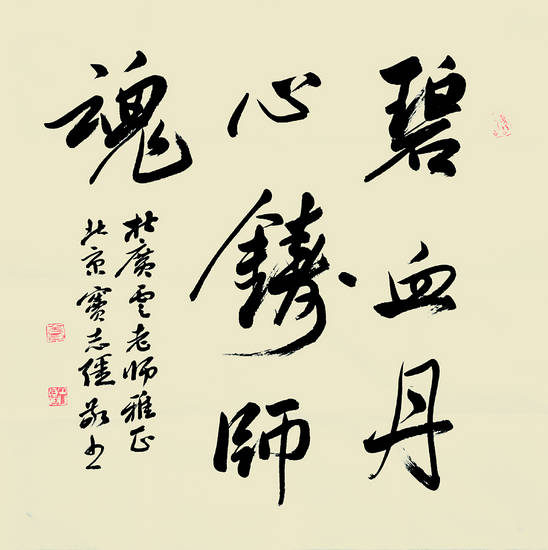 碧血丹
心鑄師
魂
杜廣雲老师雅正
北京竇志强敬书